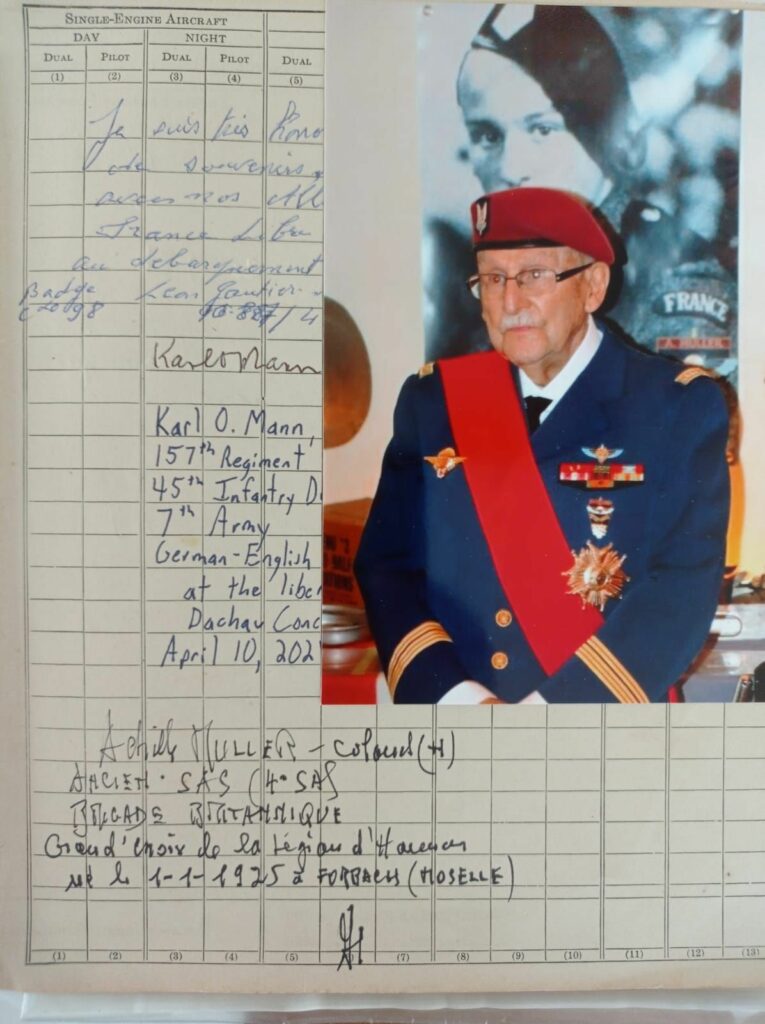 SINGLE-ENGINE AIRCRAFT
DAY NIGHT
DUAL PILOT DUAL PILOT DUAL
(1) (2) (3) (4) (5)
Je suis très hono
de souvenirs
avec nos All
France Libre
au débarquement
Badge Léon Gautier
/4
Karl O Mann
Karl O. Mann,
157th Regiment
45th Infantry D
7th Army
German-English
at the liber
Dachau Conc
April 10, 202
FRANCE
A. MULLER
Achille MULLER - Colonel (H)
ANCIEN SAS (4e SAS
BRIGADE BRITANNIQUE
Grand'Croix de la Légion d'Honneur
né le 1-1-1925 à FORBACH (MOSELLE)
(1) (2) (3) (4) (5) (7) (8) (9) (10) (11) (12) (13)